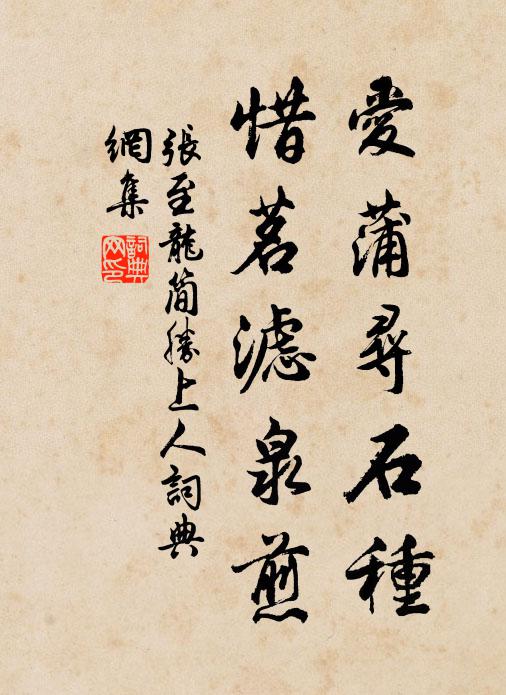 愛蒲尋石種
惜茗濾泉煎
張至龍簡勝上人詞典
網集
詞典
网印